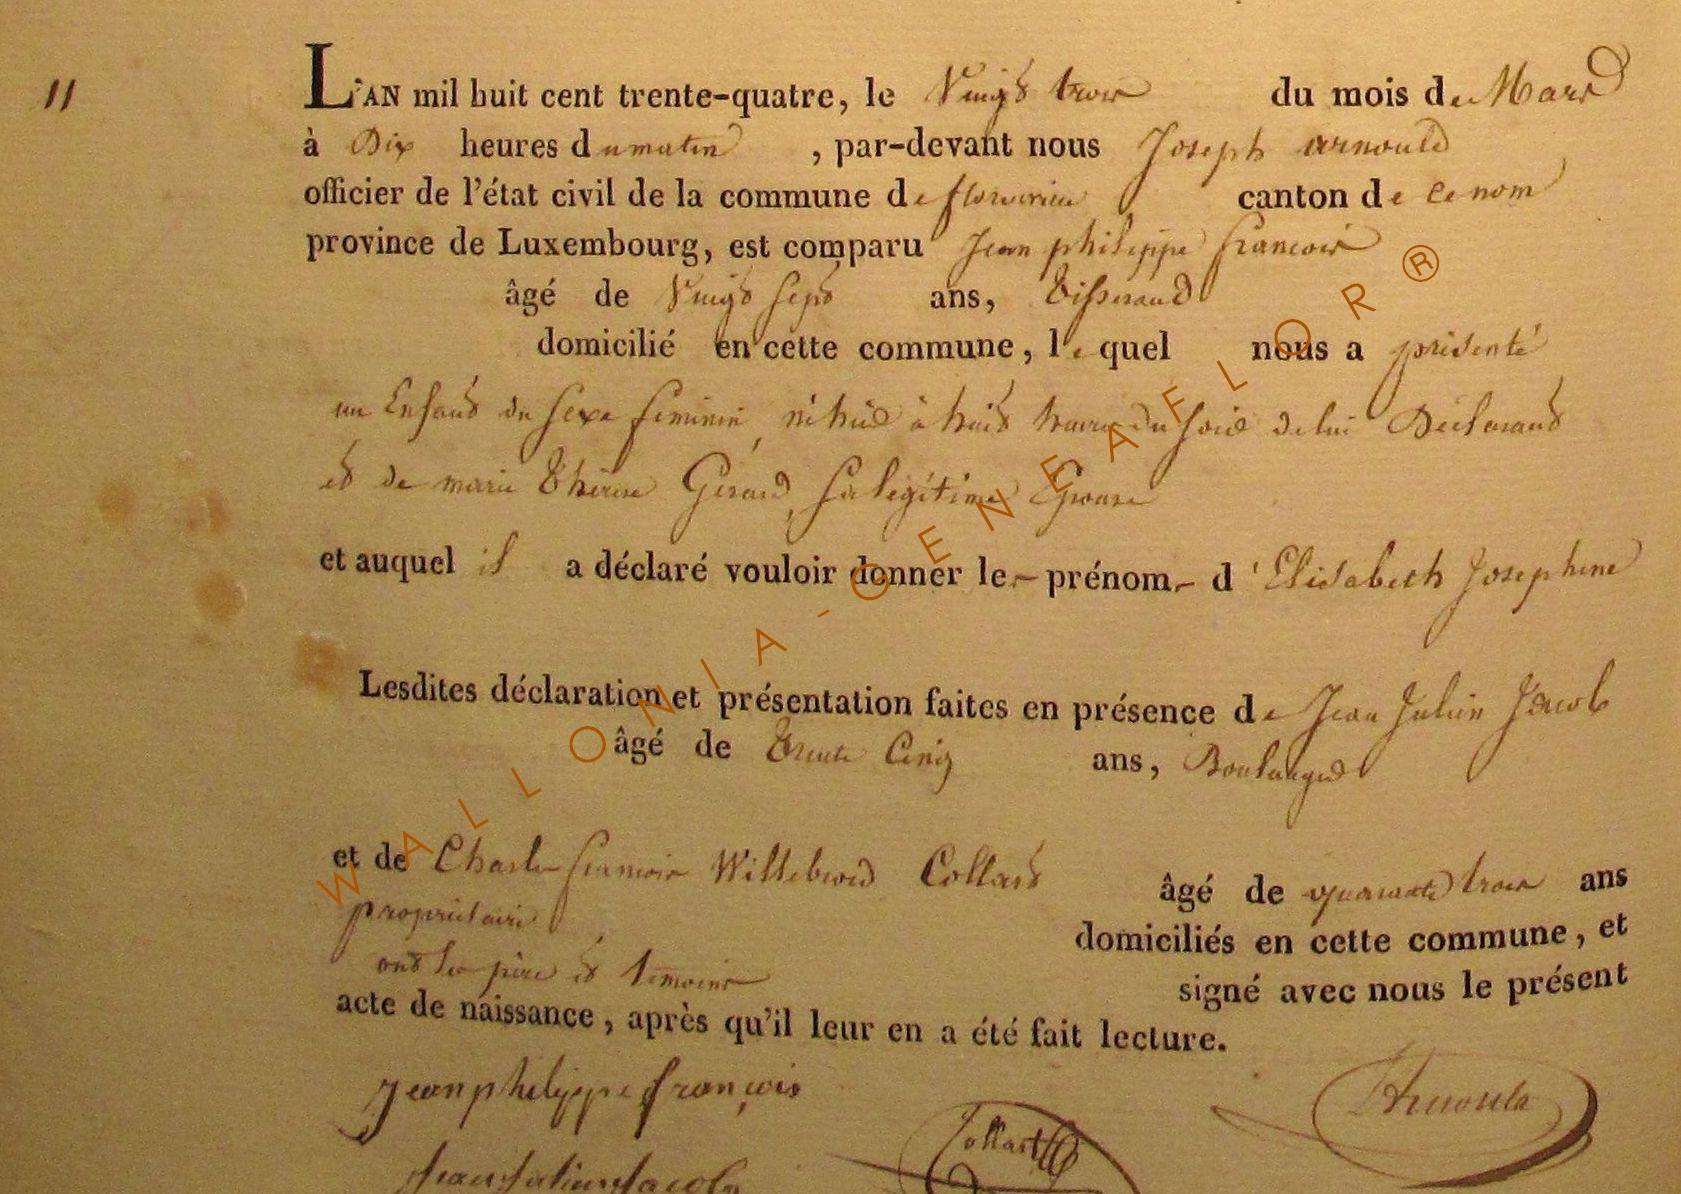 11
L'AN mil huit cent trente-quatre, le Vingt trois du mois de Mars
à Dix heures du matin, par-devant nous Joseph arnould
officier de l'état civil de la commune de florenville canton de ce nom
province de Luxembourg, est comparu Jean philippe francois
âgé de Vingt sept ans, Tisserand
domicilié en cette commune, le quel nous a présenté
un Enfant du sexe feminin, né hier à huit heures du soir de lui Déclarant
et de marie Thérese Gérard, sa légitime Epouse
et auquel il a déclaré vouloir donner les prénoms d'Elisabeth Josephine
Lesdites déclaration et présentation faites en présence de Jean Julien Jacob
âgé de Trente Cinq ans, Boulanger
et de Charles francois Willebrord Collart âgé de quarante trois ans
propriétaire domiciliés en cette commune, et
ont les père et temoins signé avec nous le présent
acte de naissance, après qu'il leur en a été fait lecture.
Jean philippe françois
Collart
Arnould
Jean Julien Jacob
WALLONIA-GENEAFLOR®